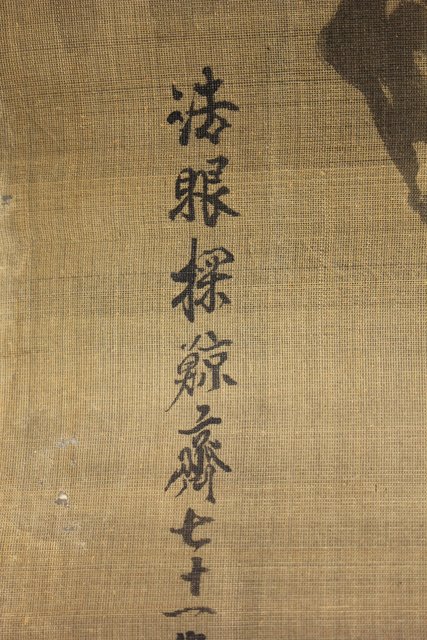 法眼探鯨齋七十一